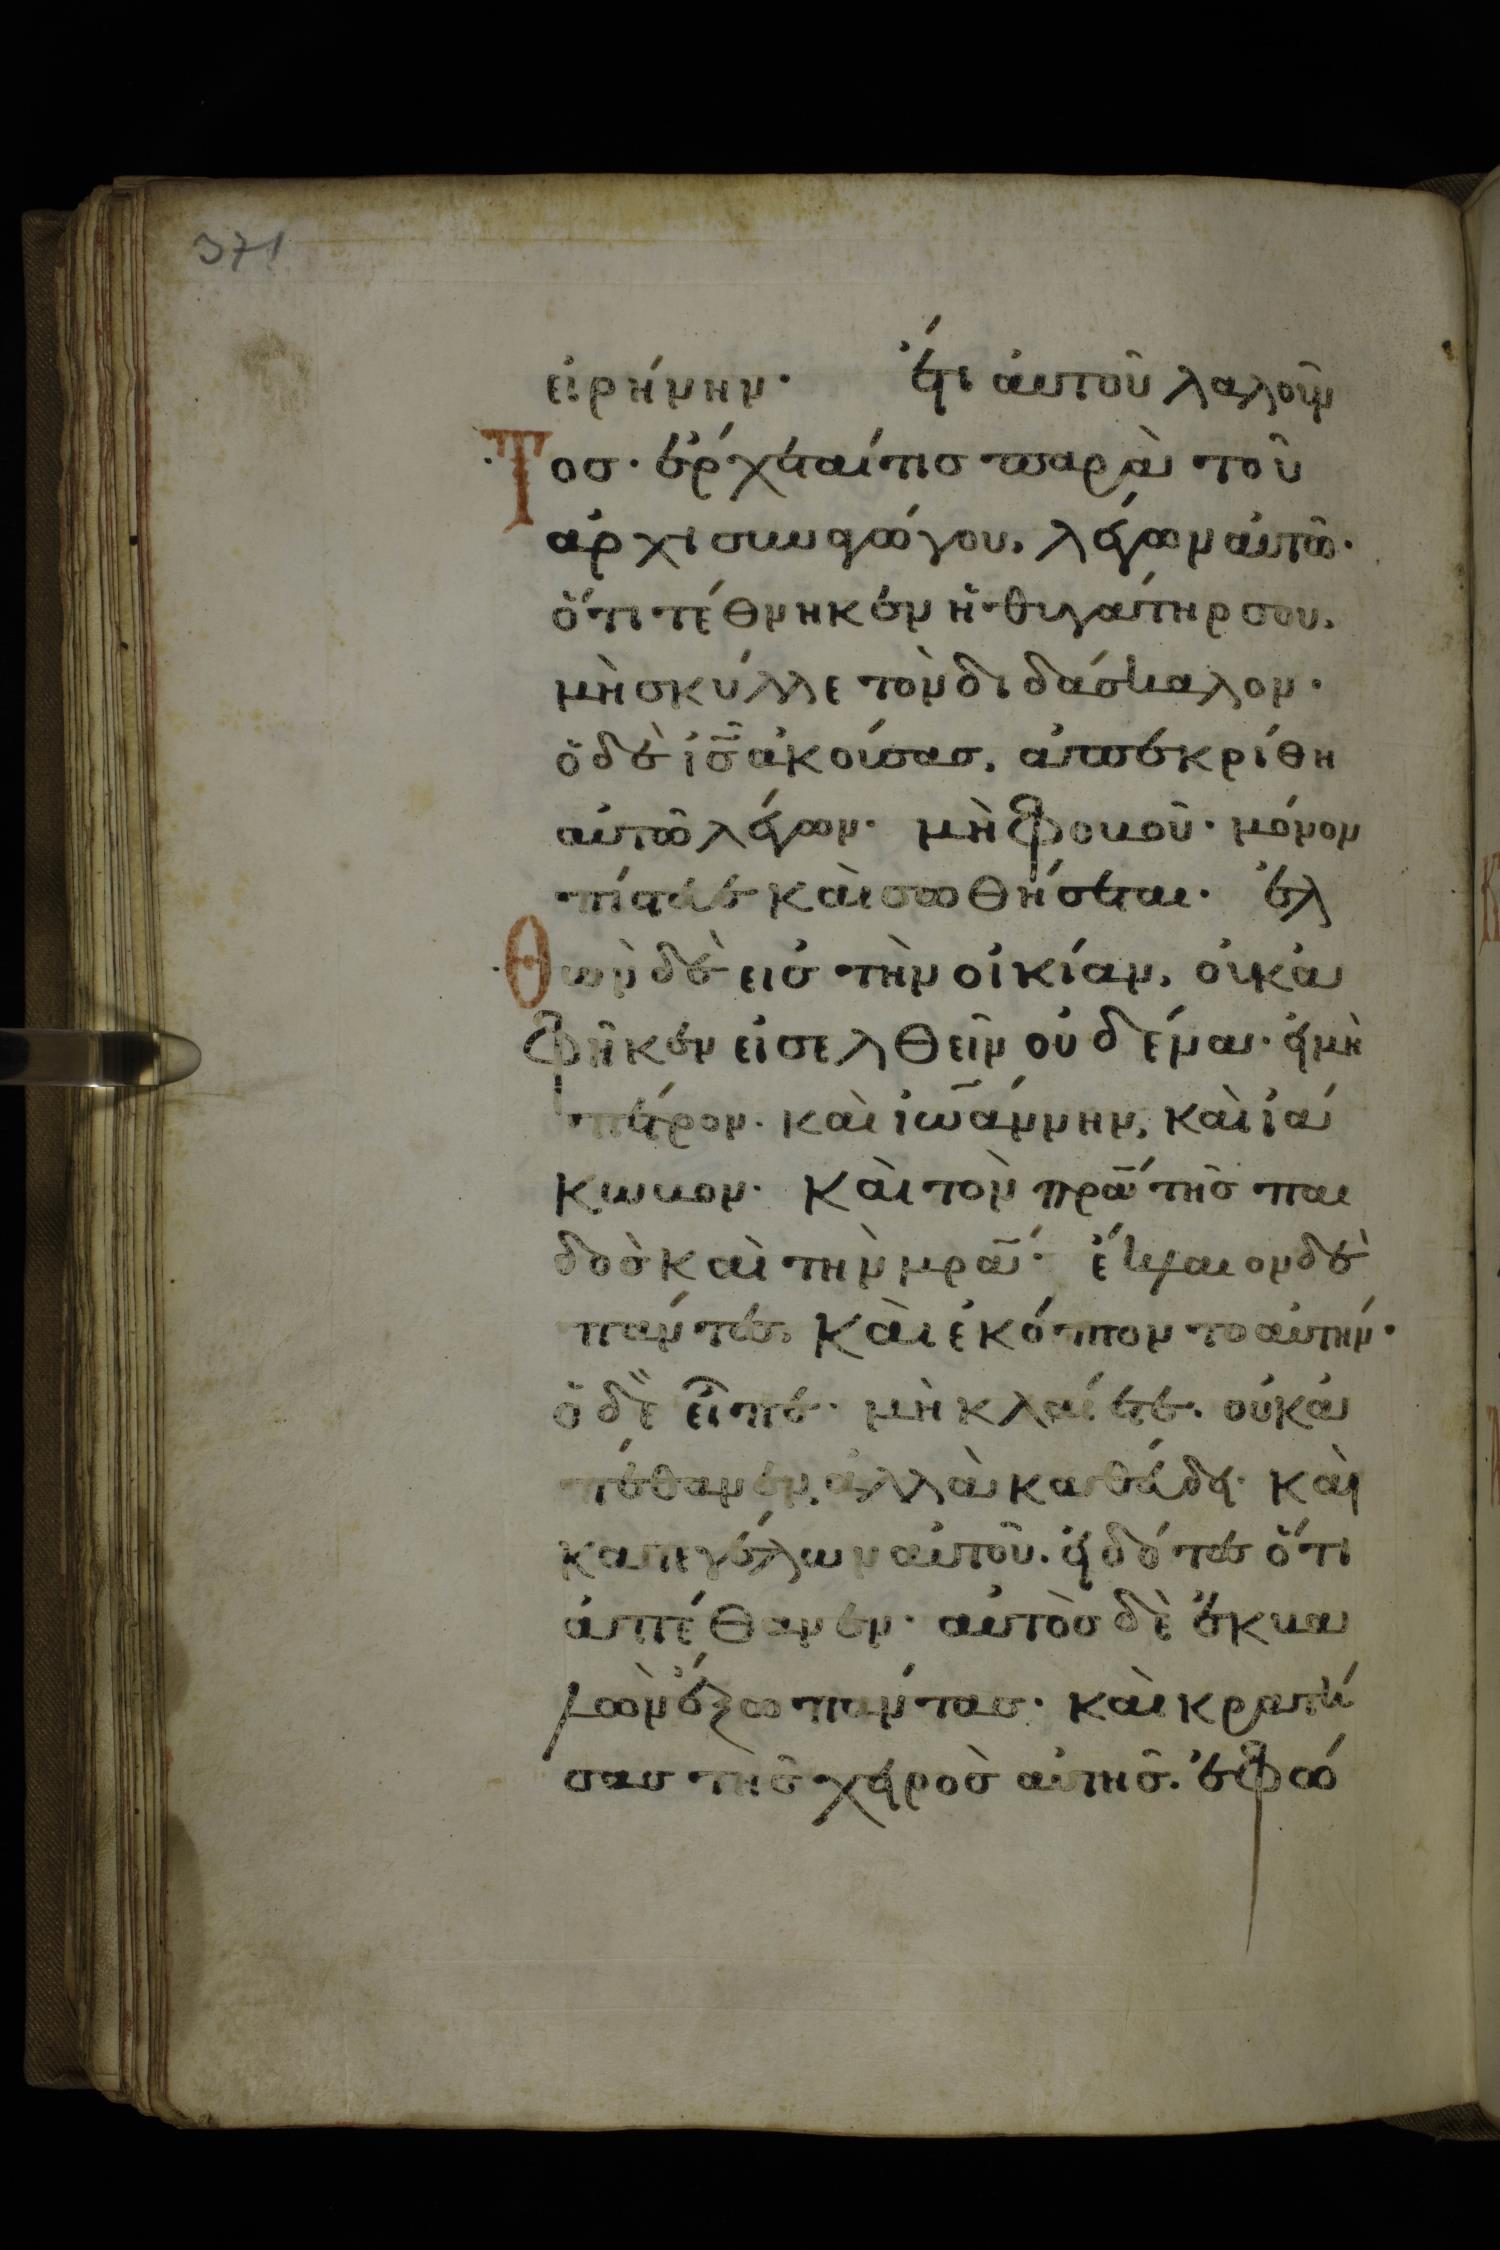 371
εἰρήνην· ἔτι αὐτοῦ λαλοῦν
Τοσ· ἔρχεταί τισ παρὰ τοῦ
ἀρχισυναγώγου, λέγων αὐτῶ·
ὅτι τέθνηκεν ἡ θυγάτηρ σου,
μὴ σκύλλε τὸν διδάσκαλον·
ὁ δὲ ἰ̅σ̅ ἀκούσασ, ἀπεκρίθη
αὐτῶ λέγων· μὴ φοβοῦ· μόνον
πίστευε καὶ σωθήσεται· ἐλ
Θὼν δὲ εἰσ τὴν οἰκίαν, οὐκ ἀ
φῆκεν εἰσελθεῖν οὐδένα· εἰ μὴ
πέτρον· καὶ ἰω̅άννην, καὶ ἰά
κωβον· καὶ τὸν πρ̅α τῆσ παι
δὸσ καὶ τὴν μρ̅α· ἔκλαιον δὲ
πάντεσ, καὶ ἐκόπτοντο αὐτήν·
ὁ δὲ εἶπε· μὴ κλαίετε. οὐκ ἀ
πέθανεν, ἀλλὰ καθεύδει· καὶ
κατεγέλων αὐτοῦ. εἰδότεσ ὅτι
ἀπέθανεν· αὐτὸσ δὲ ἐκβα
λὼν ἔξω πάντασ· καὶ κρατή
σασ τῆσ χειρὸσ αὐτῆσ. ἐφώ